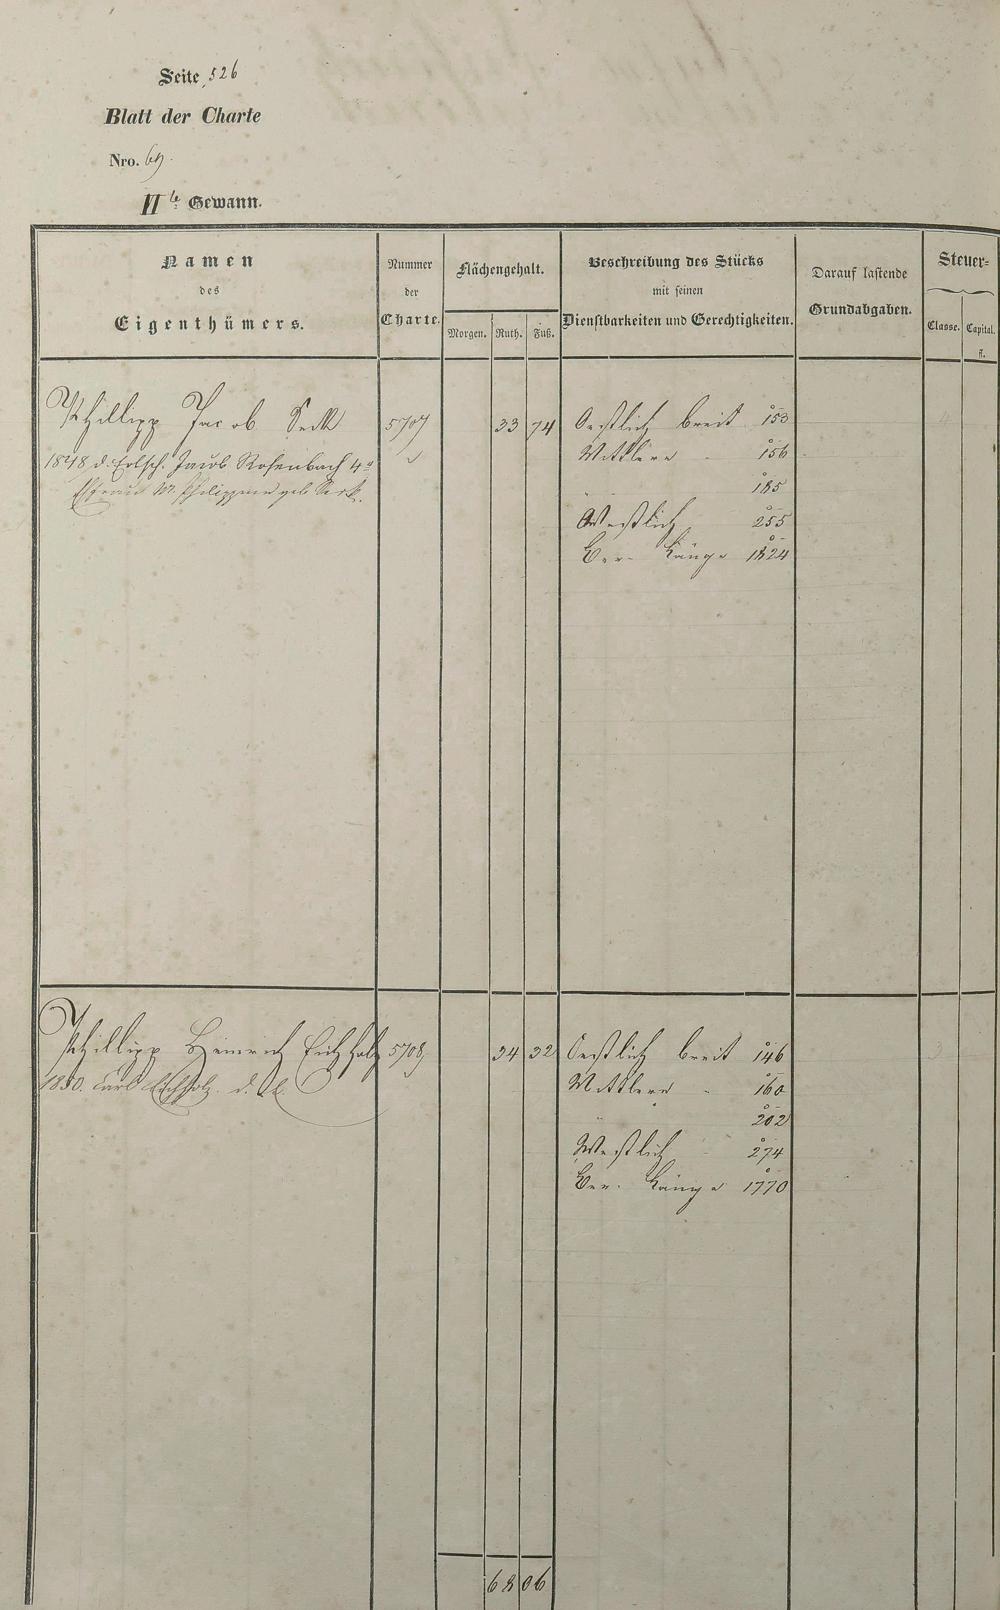 Seite 526
Blatt der Charte
Nro. 69.
IIte Gewann.
Namen
des
Eigenthümers.
Nummer
der
Charte.
Flächengehalt.
Morgen. Ruth. Fuß.
Beschreibung des Stücks
mit seinen
Dienstbarkeiten und Gerechtigkeiten.
Darauf lastende
Grundabgaben.
Steuer=
Classe. Capital.
fl.
Phillipp Jacob Seck 5707 33 74 Oestlich breit 153
1848 d. Erlsch. Jacob Rosenbach 4r Mittlere - 156
Ehefrau M. Philippine geb. Seck. 185
Westlich 255
Ber. Länge 1824
Phillipp Heinrich Eichholz 5708 34 32 Oestlich breit 146
1850. Carl Eichholz Mittlere - 160
202
Westlich - 274
Ber. Länge 1770
68 06